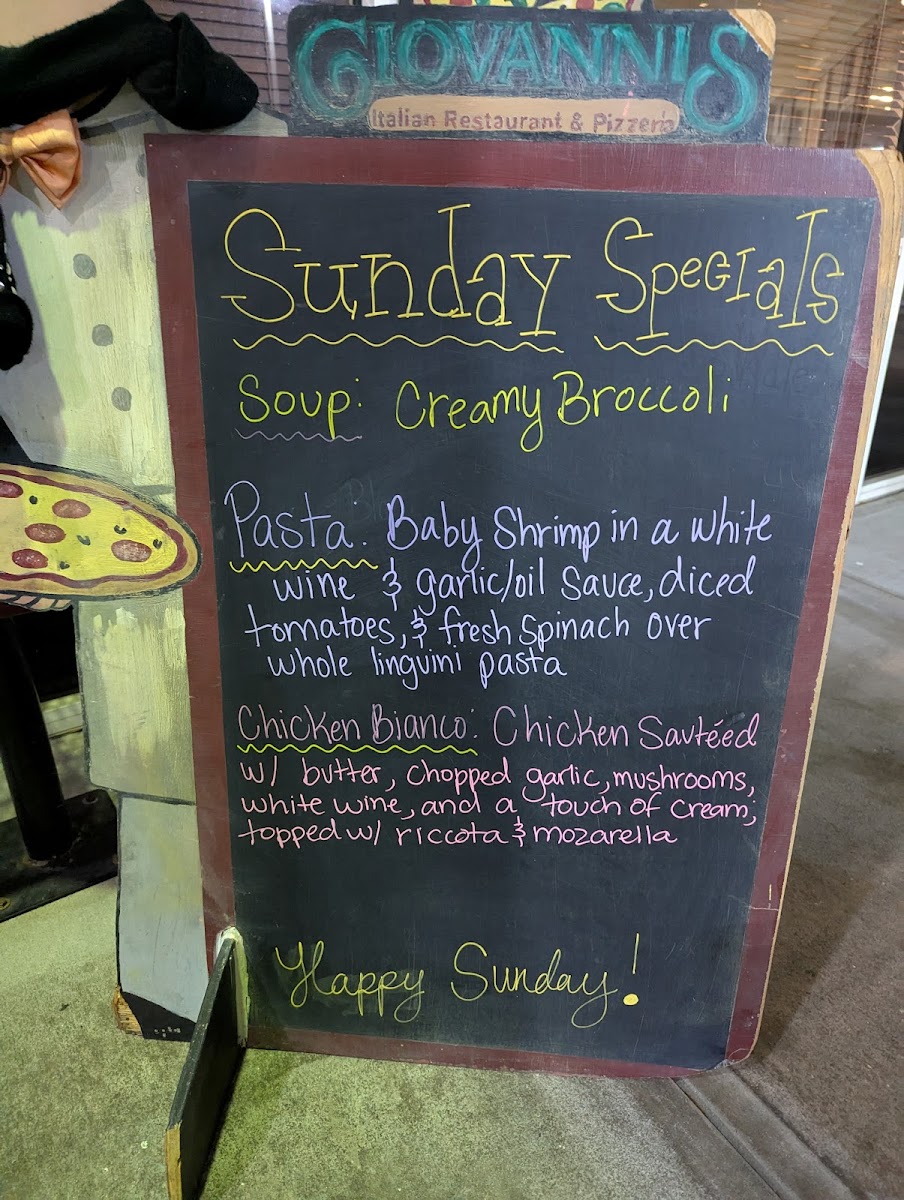 GIOVANNIS
Italian Restaurant & Pizzeria
Sunday Specials
Soup: Creamy Broccoli
Pasta: Baby Shrimp in a white
wine & garlic/oil sauce, diced
tomatoes, & fresh spinach over
whole linguini pasta
Chicken Bianco: Chicken Sautéed
w/ butter, chopped garlic, mushrooms,
white wine, and a touch of cream;
topped w/ riccota & mozarella
Happy Sunday!